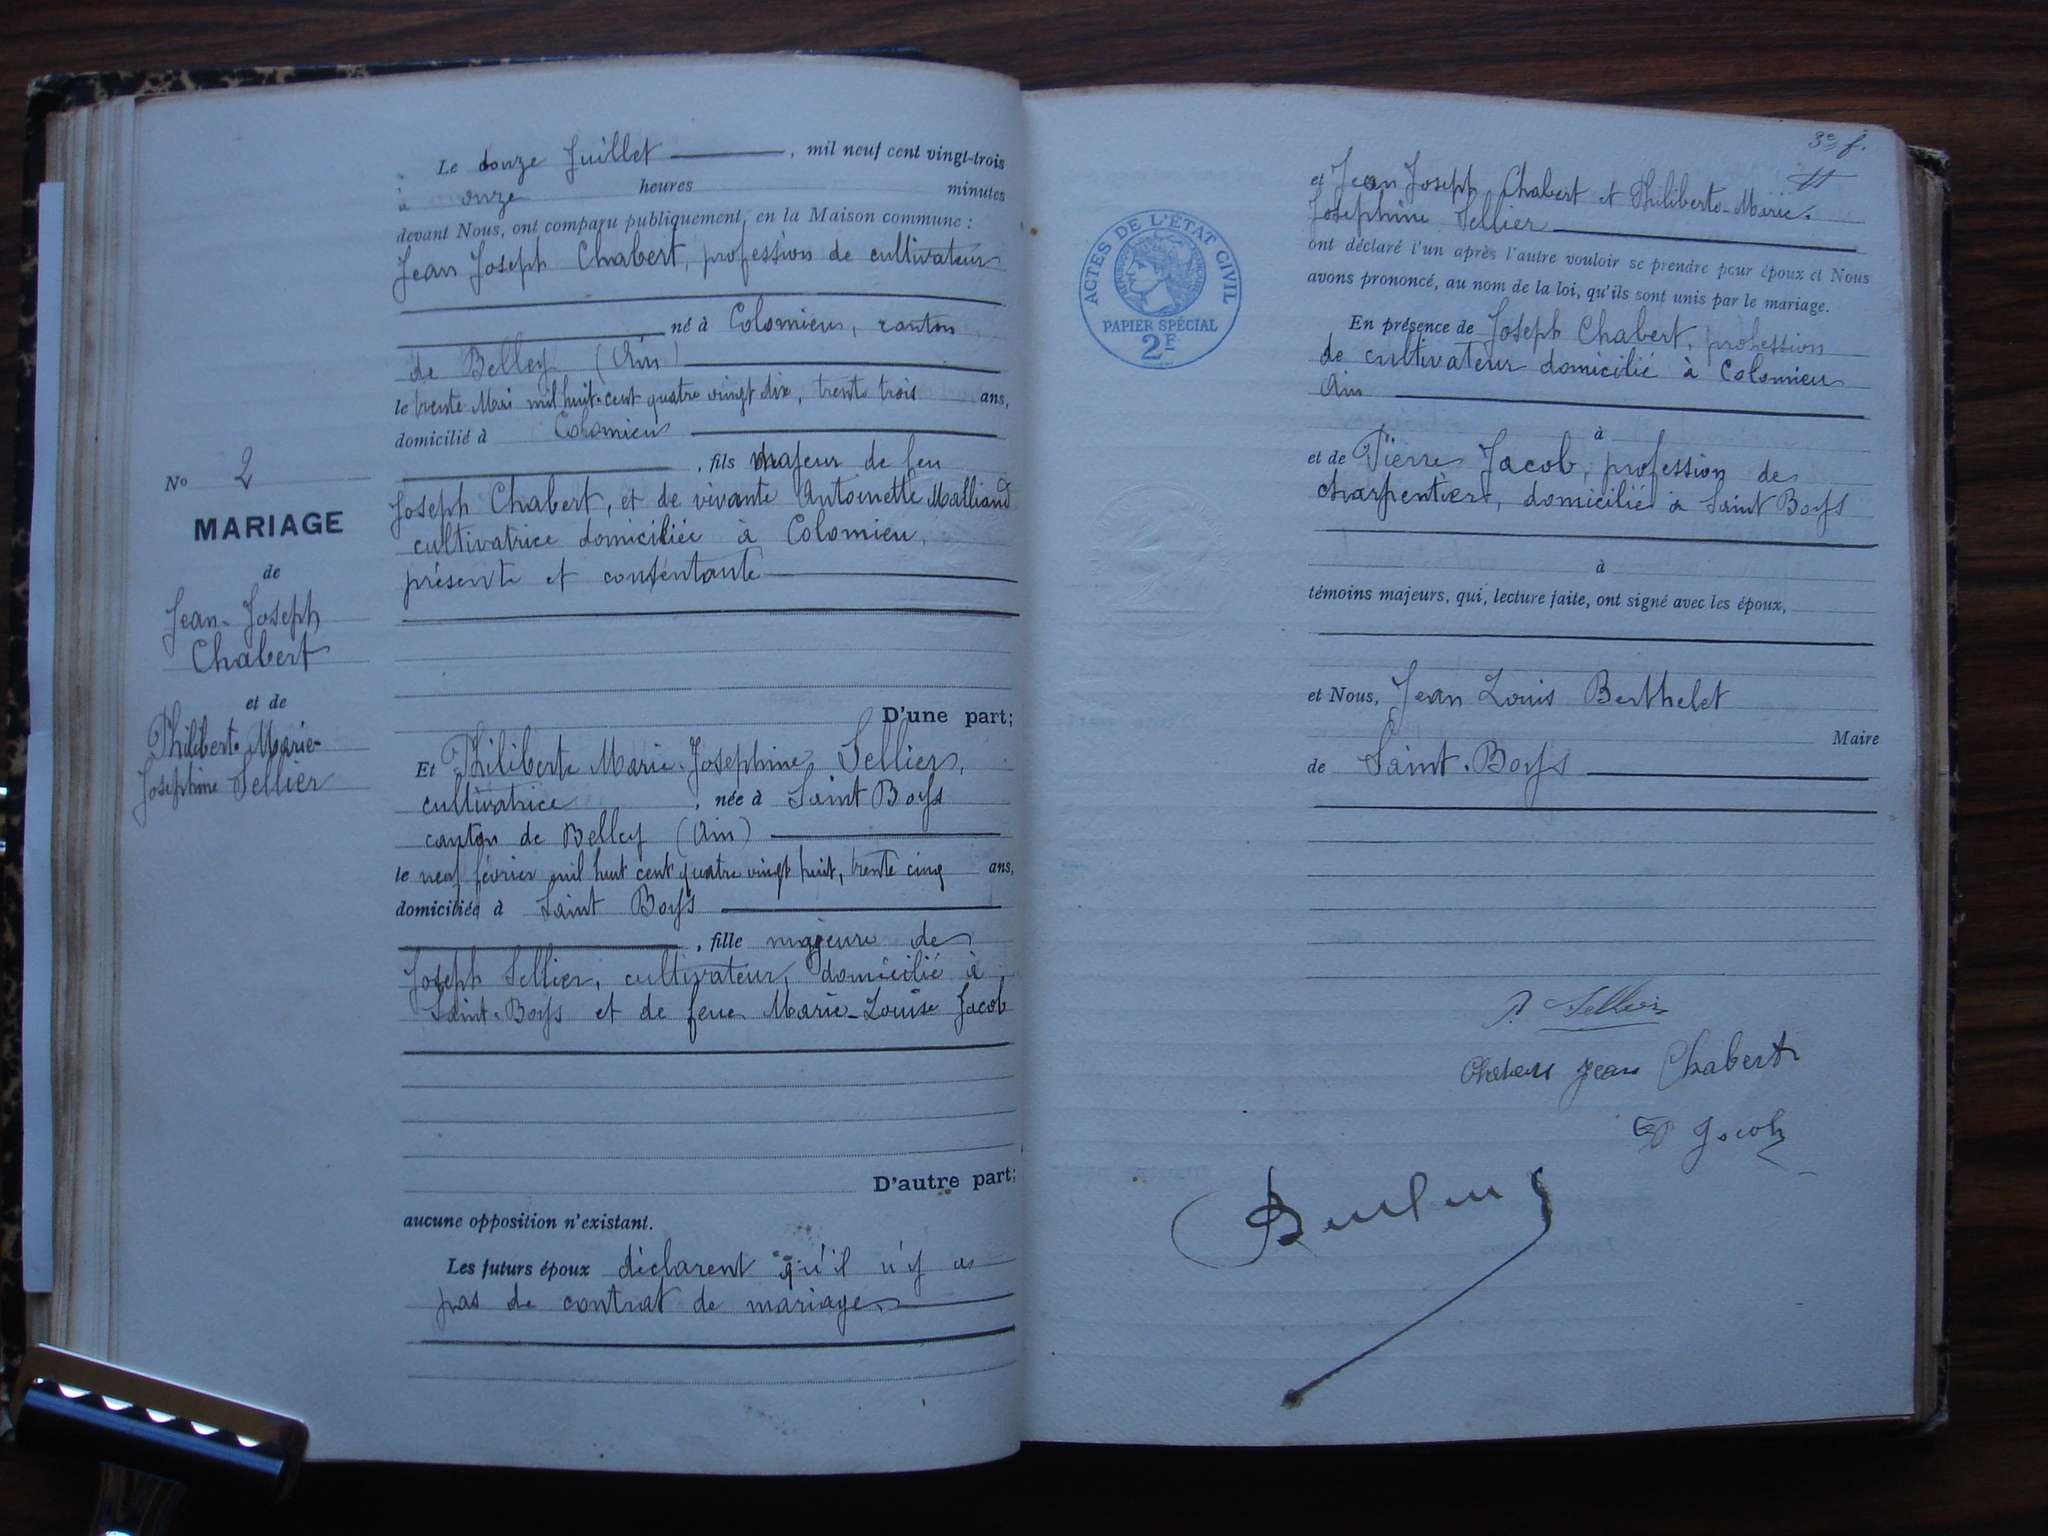 Le douze Juillet, mil neuf cent vingt-trois
à onze heures minutes
devant Nous, ont comparu publiquement, en la Maison commune :
Jean Joseph Chabert, profession de cultivateur
né à Colomieu, canton
de Belley (Ain)
le trente Mai mil huit-cent quatre vingt dix, trente trois ans,
domicilié à Colomieu
, fils majeur de feu
Joseph Chabert, et de vivante Antoinette Malliand
cultivatrice domiciliée à Colomieu,
présente et consentante
No 2
MARIAGE
de
Jean-Joseph
Chabert
et de
Philiberte Marie-
Josephine Sellier
D'une part;
Et Philiberte Marie-Josephine Sellier,
cultivatrice, née à Saint Boys
canton de Belley (Ain)
le neuf février mil huit cent quatre vingt huit, trente cinq ans,
domiciliée à Saint Boys
, fille majeure de
Joseph Sellier, cultivateur, domicilié à
Saint-Boys et de feue Marie-Louise Jacob
D'autre part;
aucune opposition n'existant.
Les futurs époux déclarent qu'il n'y a
pas de contrat de mariage
3e f.
ACTES DE L'ÉTAT CIVIL
PAPIER SPÉCIAL
2F
et Jean Joseph Chabert et Philiberte-Marie-
Josephine Sellier
ont déclaré l'un après l'autre vouloir se prendre pour époux et Nous
avons prononcé, au nom de la loi, qu'ils sont unis par le mariage.
En présence de Joseph Chabert, profession
de cultivateur domicilié à Colomieu
Ain
à
et de Pierre Jacob, profession de
charpentier, domicilié à Saint Boys
à
témoins majeurs, qui, lecture faite, ont signé avec les époux,
et Nous, Jean Louis Berthelet
Maire
de Saint-Boys
P. Sellier
Chabert Jean Chabert
Jacob